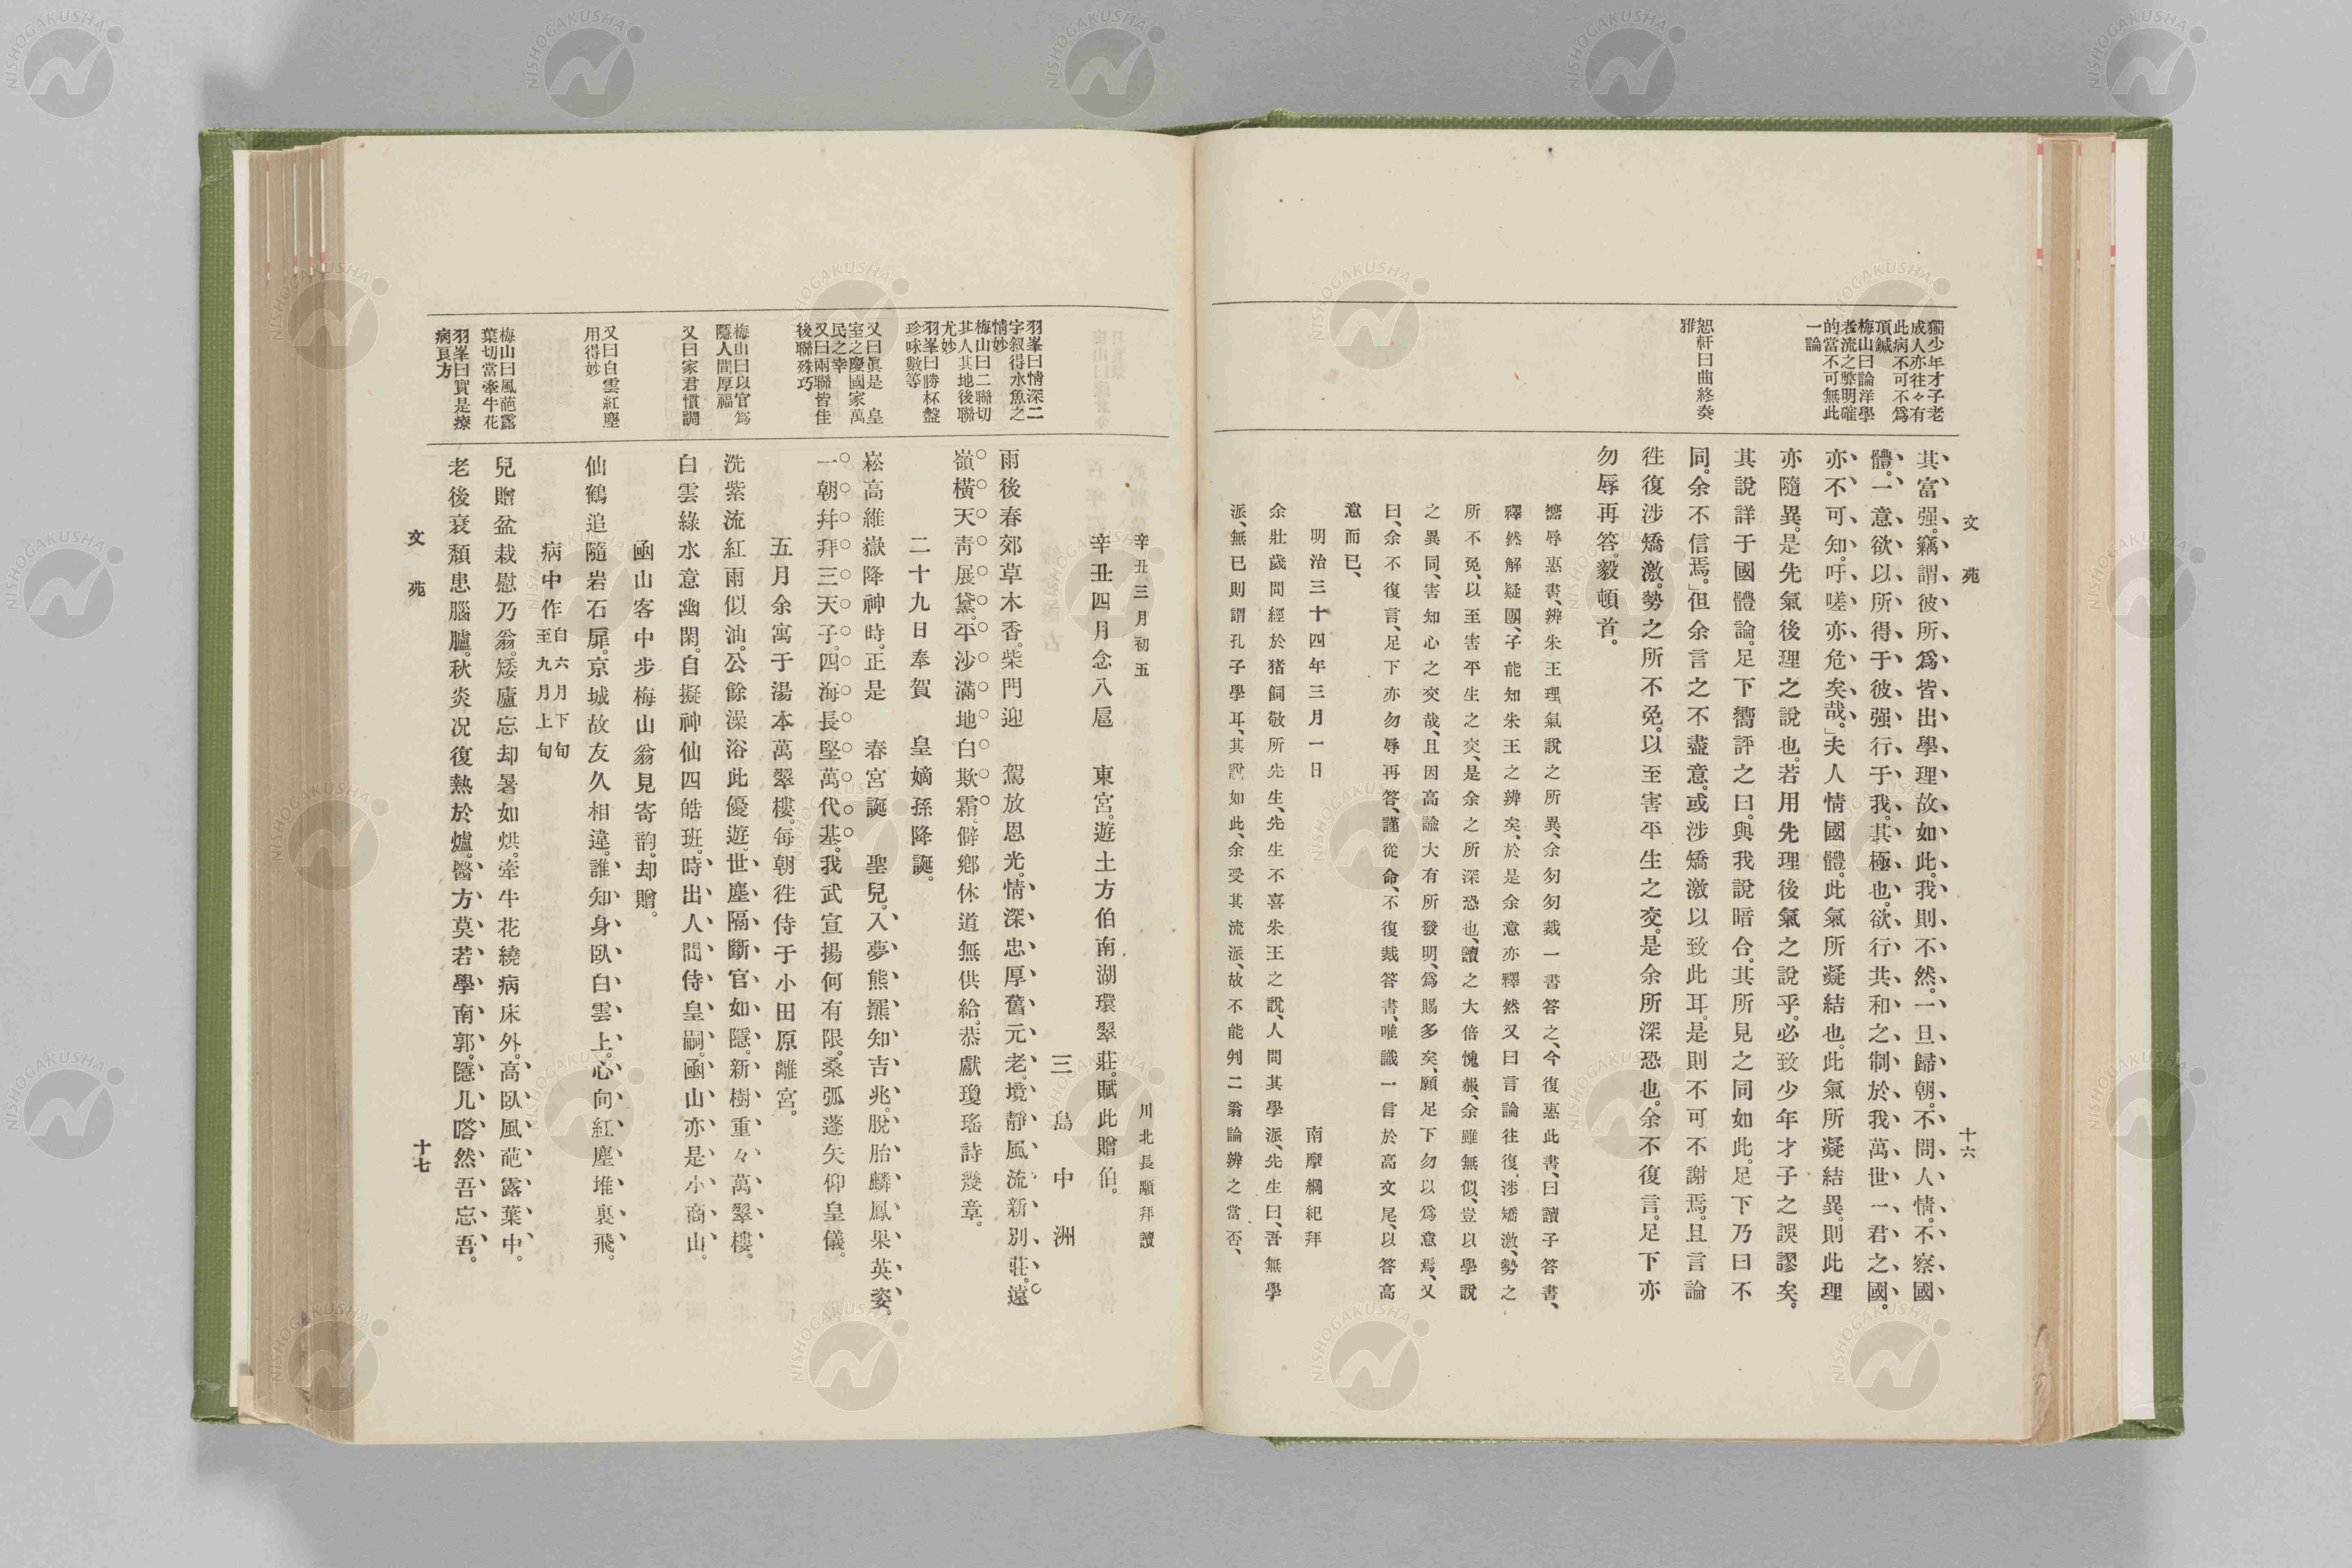 文苑
十六
獨少年才子老
成人亦往々有
此病不可不爲
頂鍼
梅山曰論洋學
者流之弊明確
的當不可無此
一論
恕軒曰曲終奏
雅
其富强。竊謂彼所爲皆出學理故如此。我則不然。一旦歸朝。不問人情。不察國
體。一意欲以所得于彼强行于我。其極也。欲行共和之制於我萬世一君之國。
亦不可知。吁嗟亦危矣哉。」夫人情國體。此氣所凝結也。此氣所凝結異。則此理
亦隨異。是先氣後理之說也。若用先理後氣之說乎。必致少年才子之誤謬矣。
其說詳于國體論。足下嚮評之曰。與我說暗合。其所見之同如此。足下乃曰不
同。余不信焉。」但余言之不盡意。或涉矯激以致此耳。是則不可不謝焉。且言論
徃復涉矯激。勢之所不免。以至害平生之交。是余所深恐也。余不復言。足下亦
勿辱再答。毅頓首。
嚮辱惠書、辨朱王理氣說之所異、余匆匆裁一書答之、今復惠此書、曰讀子答書、
釋然解疑團、子能知朱王之辨矣、於是余意亦釋然又曰言論往復、涉矯激、勢之
所不免、以至害平生之交、是余之所深恐也、讀之大倍愧赧、余雖無似、豈以學說
之異同、害知心之交哉、且因高諭大有所發明、爲賜多矣、願足下勿以爲意焉、又
曰、余不復言、足下亦勿辱再答、謹從命、不復裁答書、唯識一言於高文尾、以答高
意而已、
明治三十四年三月一日
南摩綱紀拜
余壯歲問經於猪飼敬所先生、先生不喜朱王之說、人問其學派、先生曰、吾無學
派、無已則謂孔子學耳、其說如此、余受其流派、故不能判二翁論辨之當否、
辛丑三月初五
川北長顒拜讀
辛丑四月念八扈　東宮。遊土方伯南湖環翠莊。賦此贈伯。
三島中洲
羽峯曰情深二
字叙得水魚之
情妙
梅山曰二聯切
其人其地後聯
尤妙
羽峯曰勝杯盤
珍味數等
又曰眞是　皇
室之慶國家萬
民之幸
又曰兩聯皆佳
後聯殊巧
梅山曰以官爲
隱人間厚福
又曰家君慣調
又曰白雲紅塵
用得妙
梅山曰風葩露
葉切當牽牛花
羽峯曰實是療
病良方
雨後春郊草木香。柴門迎　駕放恩光。情深忠厚舊元老。境靜風流新別莊。遠
嶺橫天靑展黛。平沙滿地白欺霜。僻鄕休道無供給。恭獻瓊瑤詩幾章。
二十九日奉賀　皇嫡孫降誕。
崧高維嶽降神時。正是　春宮誕　聖兒。入夢熊羆知吉兆。脫胎麟鳳果英姿。
一朝幷拜三天子。四海長堅萬代基。我武宣揚何有限。桑弧蓬矢仰皇儀。
五月余寓于湯本萬翠樓。每朝徃侍于小田原離宮。
洗紫流紅雨似油。公餘澡浴此優遊。世塵隔斷官如隱。新樹重々萬翠樓。
白雲綠水意幽閑。自擬神仙四皓班。時出人間侍皇嗣。凾山亦是小商山。
凾山客中步梅山翁見寄韵。却贈。
仙鶴追隨岩石扉。京城故友久相違。誰知身臥白雲上。心向紅塵堆裏飛。
病中作自六月下旬至九月上旬
兒贈盆栽慰乃翁。矮廬忘却暑如烘。牽牛花繞病床外。高臥風葩露葉中。
老後衰頹患腦臚。秋炎况復熱於爐。醫方莫若學南郭。隱几嗒然吾忘吾。
文苑
十七